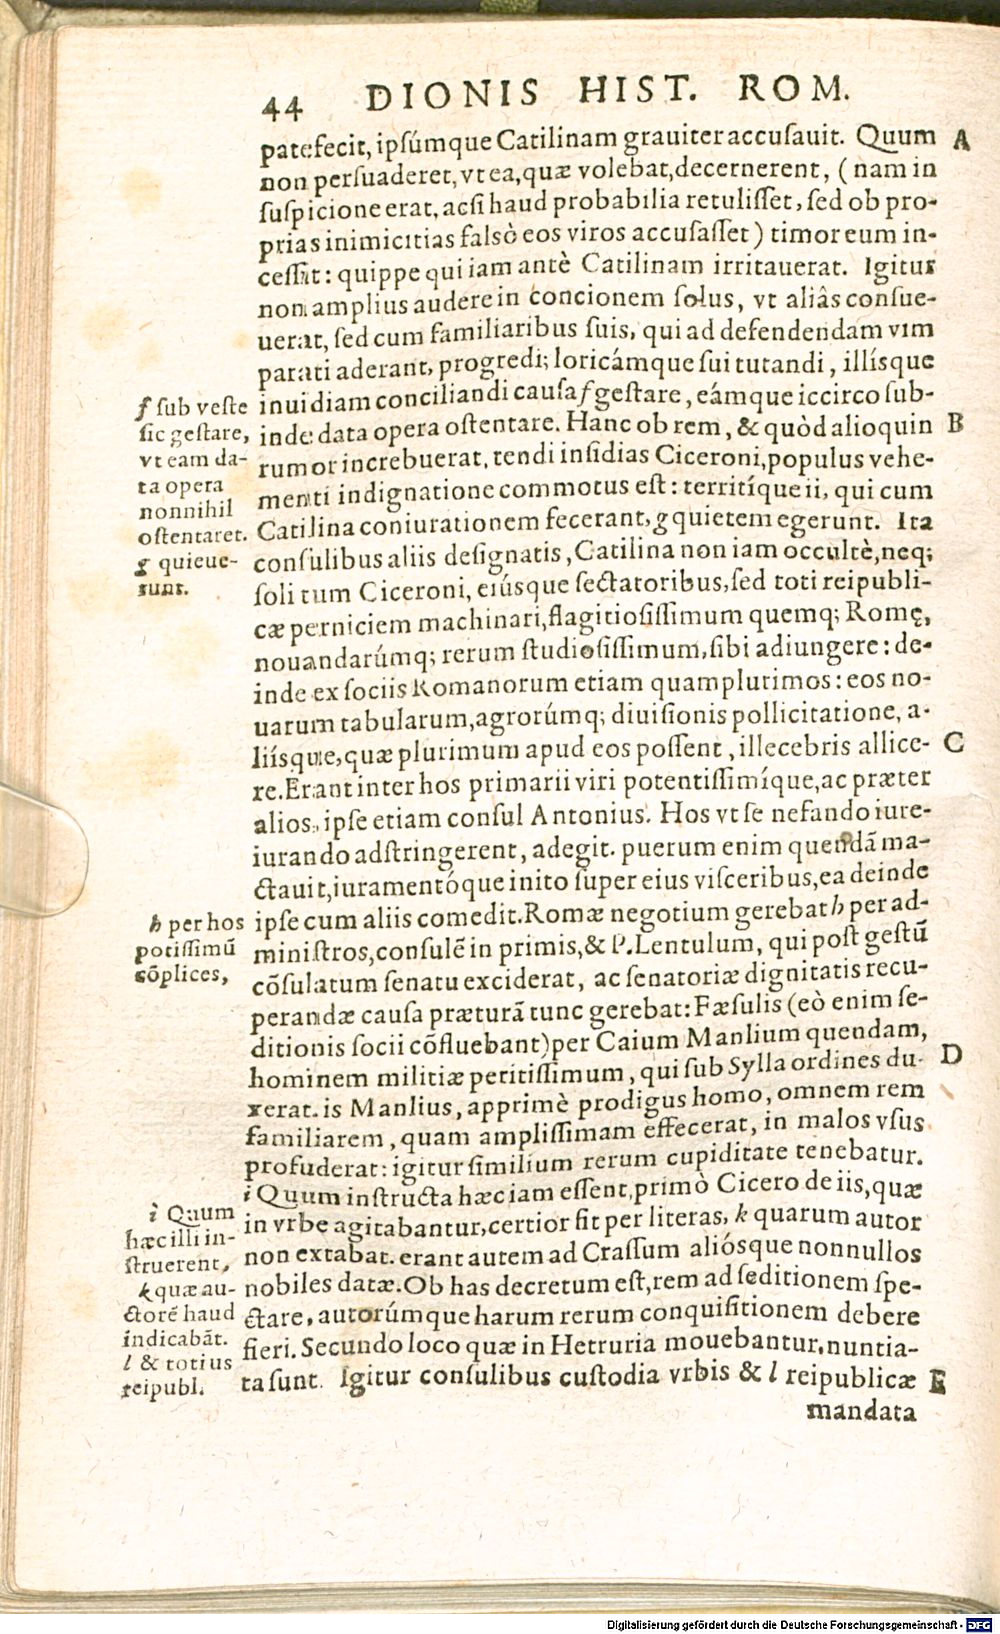 44 DIONIS HIST. ROM.
patefecit, ipſúmque Catilinam grauiter accuſauit. Quum A
non perſuaderet, vt ea, quæ volebat, decernerent, (nam in
ſuſpicione erat, acſi haud probabilia retuliſſet, ſed ob pro-
prias inimicitias falsò eos viros accuſaſſet) timor eum in-
ceſſit: quippe qui iam antè Catilinam irritauerat. Igitur
non amplius audere in concionem ſolus, vt aliâs conſue-
uerat, ſed cum familiaribus ſuis, qui ad defendendam vim
parati aderant, progredi; loricámque ſui tutandi, illíſque
inuidiam conciliandi cauſa f geſtare, eámque iccirco ſub-
inde data opera oſtentare. Hanc ob rem, & quòd alioquin B
rumor increbuerat, tendi inſidias Ciceroni, populus vehe-
menti indignatione commotus eſt: territíque ii, qui cum
Catilina coniurationem fecerant, g quietem egerunt. Ita
conſulibus aliis deſignatis, Catilina non iam occultè, neq;
ſoli tum Ciceroni, eiúſque ſectatoribus, ſed toti reipubli-
cæ perniciem machinari, flagitioſiſſimum quemq; Romę,
nouandarúmq; rerum ſtudioſiſſimum, ſibi adiungere: de-
inde ex ſociis Romanorum etiam quamplurimos: eos no-
uarum tabularum, agrorúmq; diuiſionis pollicitatione, a-
liíſque, quæ plurimum apud eos poſſent, illecebris allice- C
re. Erant inter hos primarii viri potentiſſimíque, ac præter
alios, ipſe etiam conſul Antonius. Hos vt ſe nefando iure-
iurando adſtringerent, adegit. puerum enim quendã ma-
ctauit, iuramentóque inito ſuper eius viſceribus, ea deinde
ipſe cum aliis comedit. Romæ negotium gerebat h per ad-
miniſtros, conſulẽ in primis, & P. Lentulum, qui poſt geſtũ
cõſulatum ſenatu exciderat, ac ſenatoriæ dignitatis recu-
perandæ cauſa præturã tunc gerebat: Fæſulis (eò enim ſe-
ditionis ſocii cõfluebant) per Caium Manlium quendam,
hominem militiæ peritiſſimum, qui ſub Sylla ordines du- D
xerat. is Manlius, apprimè prodigus homo, omnem rem
familiarem, quam ampliſſimam effecerat, in malos vſus
profuderat: igitur ſimilium rerum cupiditate tenebatur.
i Quum inſtructa hæc iam eſſent, primò Cicero de iis, quæ
in vrbe agitabantur, certior fit per literas, k quarum autor
non extabat. erant autem ad Craſſum alióſque nonnullos
nobiles datæ. Ob has decretum eſt, rem ad ſeditionem ſpe-
ctare, autorúmque harum rerum conquiſitionem debere
fieri. Secundo loco quæ in Hetruria mouebantur, nuntia-
ta ſunt. Igitur conſulibus cuſtodia vrbis & l reipublicæ E
mandata
f ſub veſte
ſic geſtare,
vt eam da-
ta opera
nonnihil
oſtentaret.
g quieue-
runt.
h per hos
potiſſimũ
cõplices,
i Quum
hæc illi in-
ſtruerent,
k quæ au-
ctorẽ haud
indicabãt.
l & totius
reipubl.
Digitalisierung gefördert durch die Deutsche Forschungsgemeinschaft - DFG